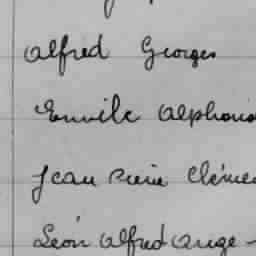 Alfred Georges
Emile Alphons
Jean Pierre Cléme
Léon Alfred Ange -